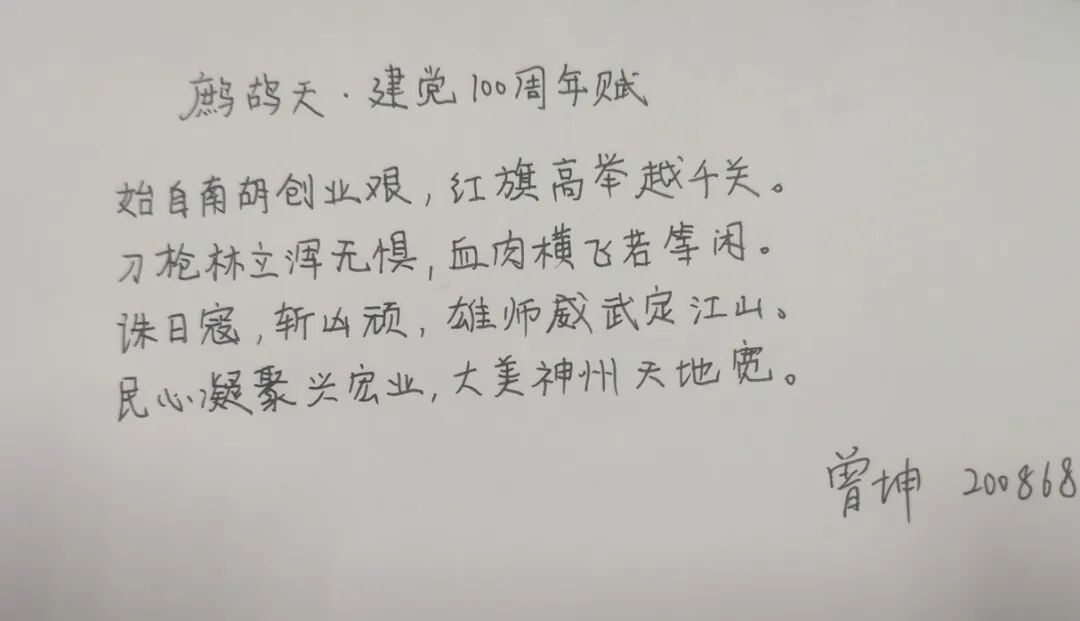 鹧鸪天·建党100周年赋
始自南胡创业艰,红旗高举越千关。
刀枪林立浑无惧,血肉横飞若等闲。
诛日寇,斩凶顽,雄师威武定江山。
民心凝聚兴宏业,大美神州天地宽。
曾坤 200868